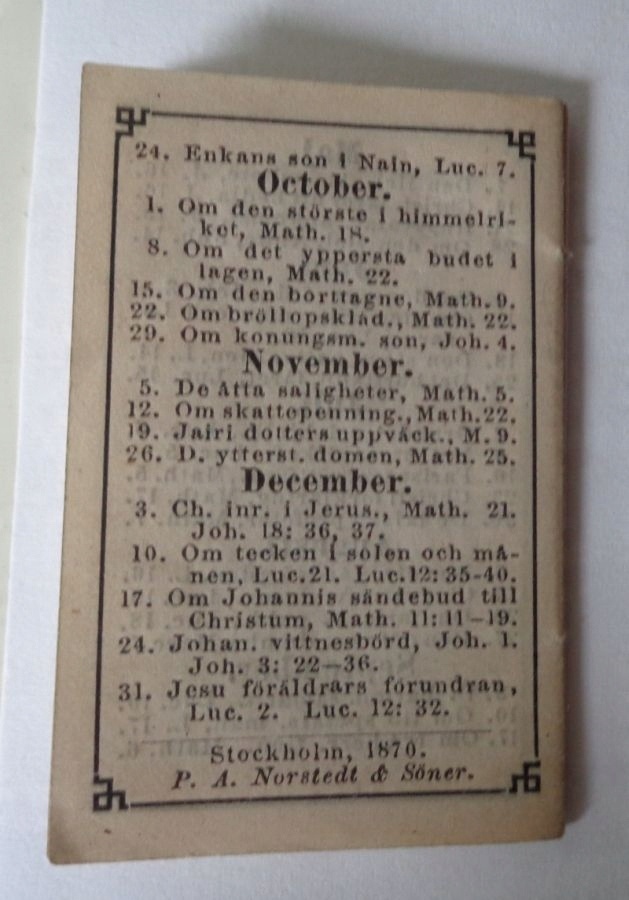 24. Enkans son i Nain, Luc. 7.
October.
1. Om den störste i himmelri-
ket, Math. 18.
8. Om det yppersta budet i
lagen, Math. 22.
15. Om den borttagne, Math. 9.
22. Om bröllopskläd., Math. 22.
29. Om konungsm. son, Joh. 4.
November.
5. De åtta saligheter, Math. 5.
12. Om skattepenning., Math. 22.
19. Jairi dotters uppväck., M. 9.
26. D. ytterst. domen, Math. 25.
December.
3. Ch. inr. i Jerus., Math. 21.
Joh. 18: 36, 37.
10. Om tecken i solen och må-
nen, Luc. 21. Luc. 12: 35-40.
17. Om Johannis sändebud till
Christum, Math. 11: 11-19.
24. Johan. vittnesbörd, Joh. 1.
Joh. 3: 22-36.
31. Jesu föräldrars förundran,
Luc. 2. Luc. 12: 32.
Stockholm, 1870.
P. A. Norstedt & Söner.